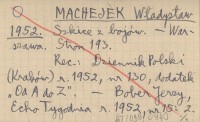 MACHEJEK Władysław
1952. Szkice z bojów. — War-
szawa. Stron 193.
Rec.: Dziennik Polski
(Kraków) r. 1952, nr 130, dodatek
„Od A do Z". — Bober Jerzy,
Echo Tygodnia r. 1952, nr 15.